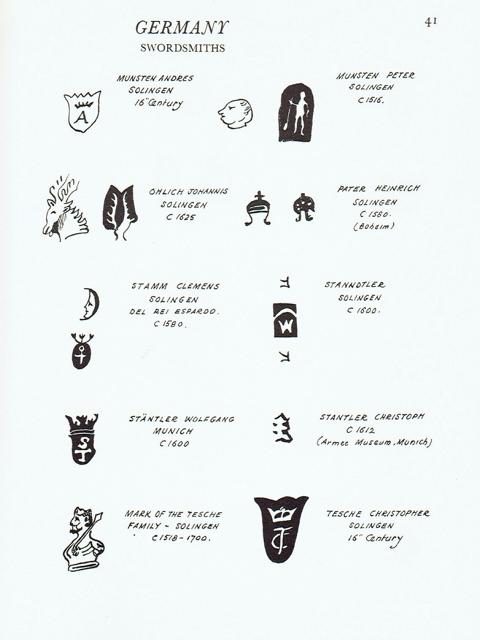 41
GERMANY
SWORDSMITHS
MUNSTEN ANDRES
SOLINGEN
16" Century
A
MUNSTEN PETER
SOLINGEN
C 1516.
OHLICH JOHANNIS
SOLINGEN
C 1625
PATER HEINRICH
SOLINGEN
C 1580.
(Boheim)
STAMM CLEMENS
SOLINGEN
DEL REI ESPARDO.
C 1580.
STANNDTLER
SOLINGEN
C 1600.
W
STÄNTLER WOLFGANG
MUNICH
C 1600
S
T
STANTLER CHRISTOPH
C 1612
(Armee Museum, Munich)
MARK OF THE TESCHE
FAMILY - SOLINGEN
C 1518-1700.
TESCHE CHRISTOPHER
SOLINGEN
16" Century